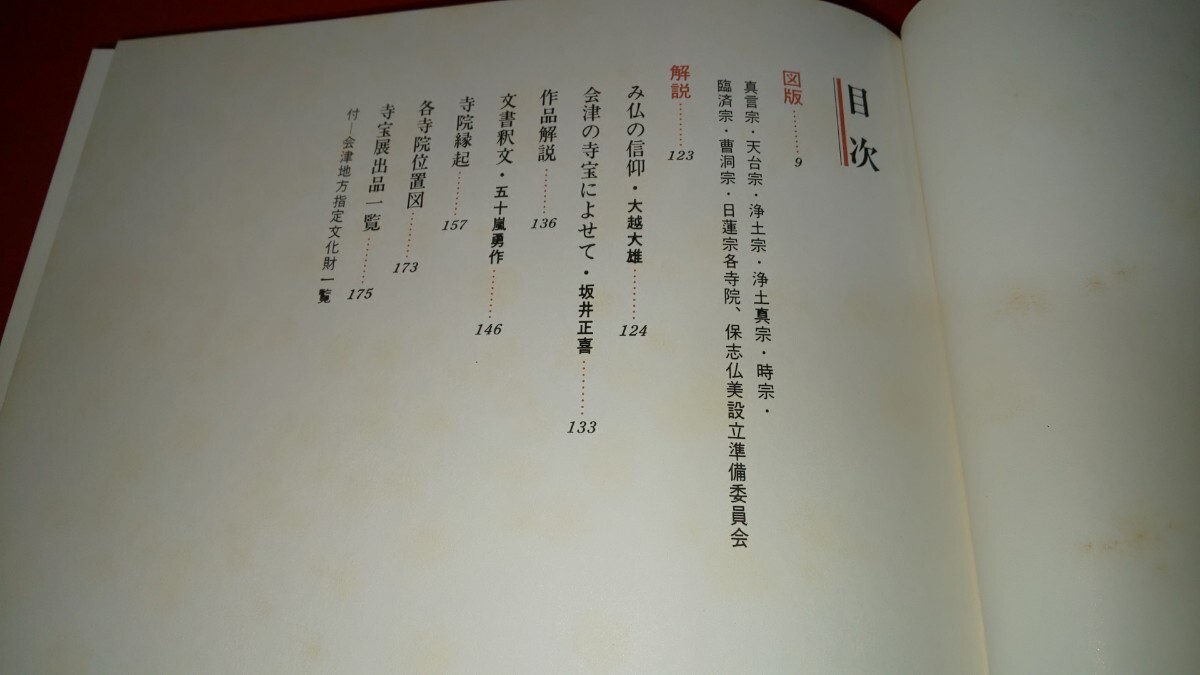 目次
図版………9
真言宗・天台宗・浄土宗・浄土真宗・時宗・
臨済宗・曹洞宗・日蓮宗各寺院、保志仏美設立準備委員会
解説………123
み仏の信仰・大越大雄………124
会津の寺宝によせて・坂井正喜………133
作品解説………136
文書釈文・五十嵐勇作………146
寺院縁起………157
各寺院位置図………173
寺宝展出品一覧………175
付―会津地方指定文化財一覧